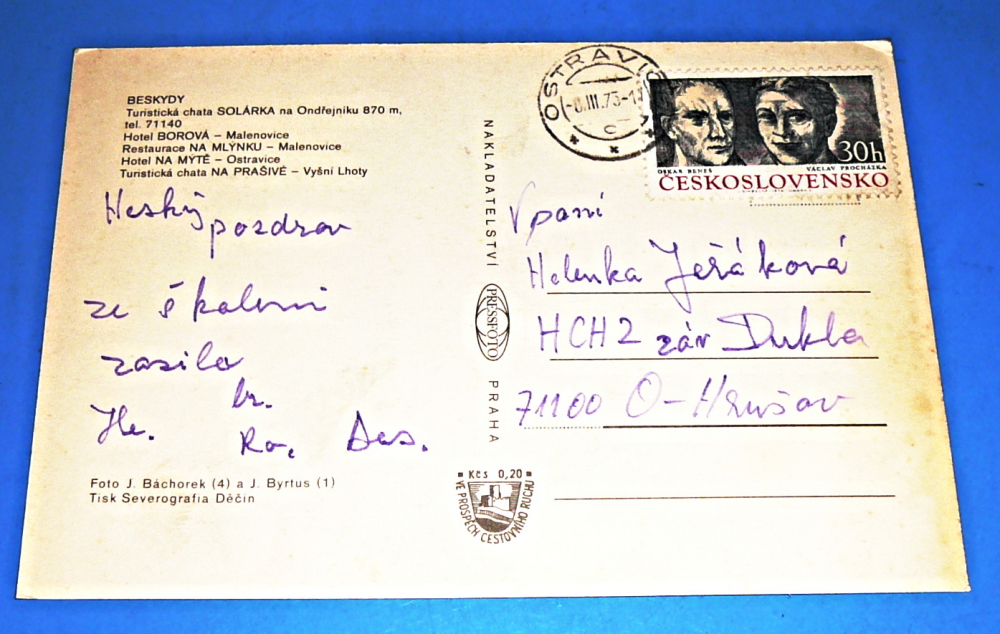 BESKYDY
Turistická chata SOLÁRKA na Ondřejníku 870 m,
tel. 71140
Hotel BOROVÁ – Malenovice
Restaurace NA MLÝNKU – Malenovice
Hotel NA MÝTĚ – Ostravice
Turistická chata NA PRAŠIVÉ – Vyšní Lhoty
Heský
pozdrav
ze školení
zasílá
Foto J. Báchorek (4) a J. Byrtus (1)
Tisk Severografia Děčín
NAKLADATELSTVÍ
PRESSFOTO
PRAHA
Kčs 0,20
VE PROSPĚCH CESTOVNÍHO RUCHU
OSTRAVIC
30h
OSKAR BENEŠ VÁCLAV PROCHÁZKA
ČESKOSLOVENSKO
Vpaní
Helenka Jeřáková
HCHZ záv Dukla
71100 O-Hrušov